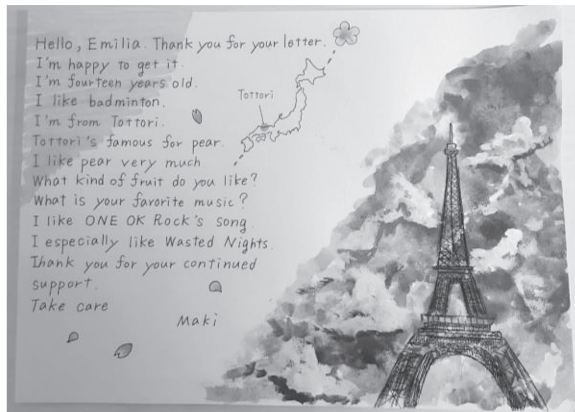 Hello, Emilia. Thank you for your letter.
I'm happy to get it.
I'm fourteen years old.
I like badminton.
I'm from Tottori.
Tottori's famous for pear.
I like pear very much
What kind of fruit do you like?
What is your favorite music?
I like ONE OK Rock's song.
I especially like Wasted Nights.
Thank you for your continued
support.
Take care
Maki
Tottori